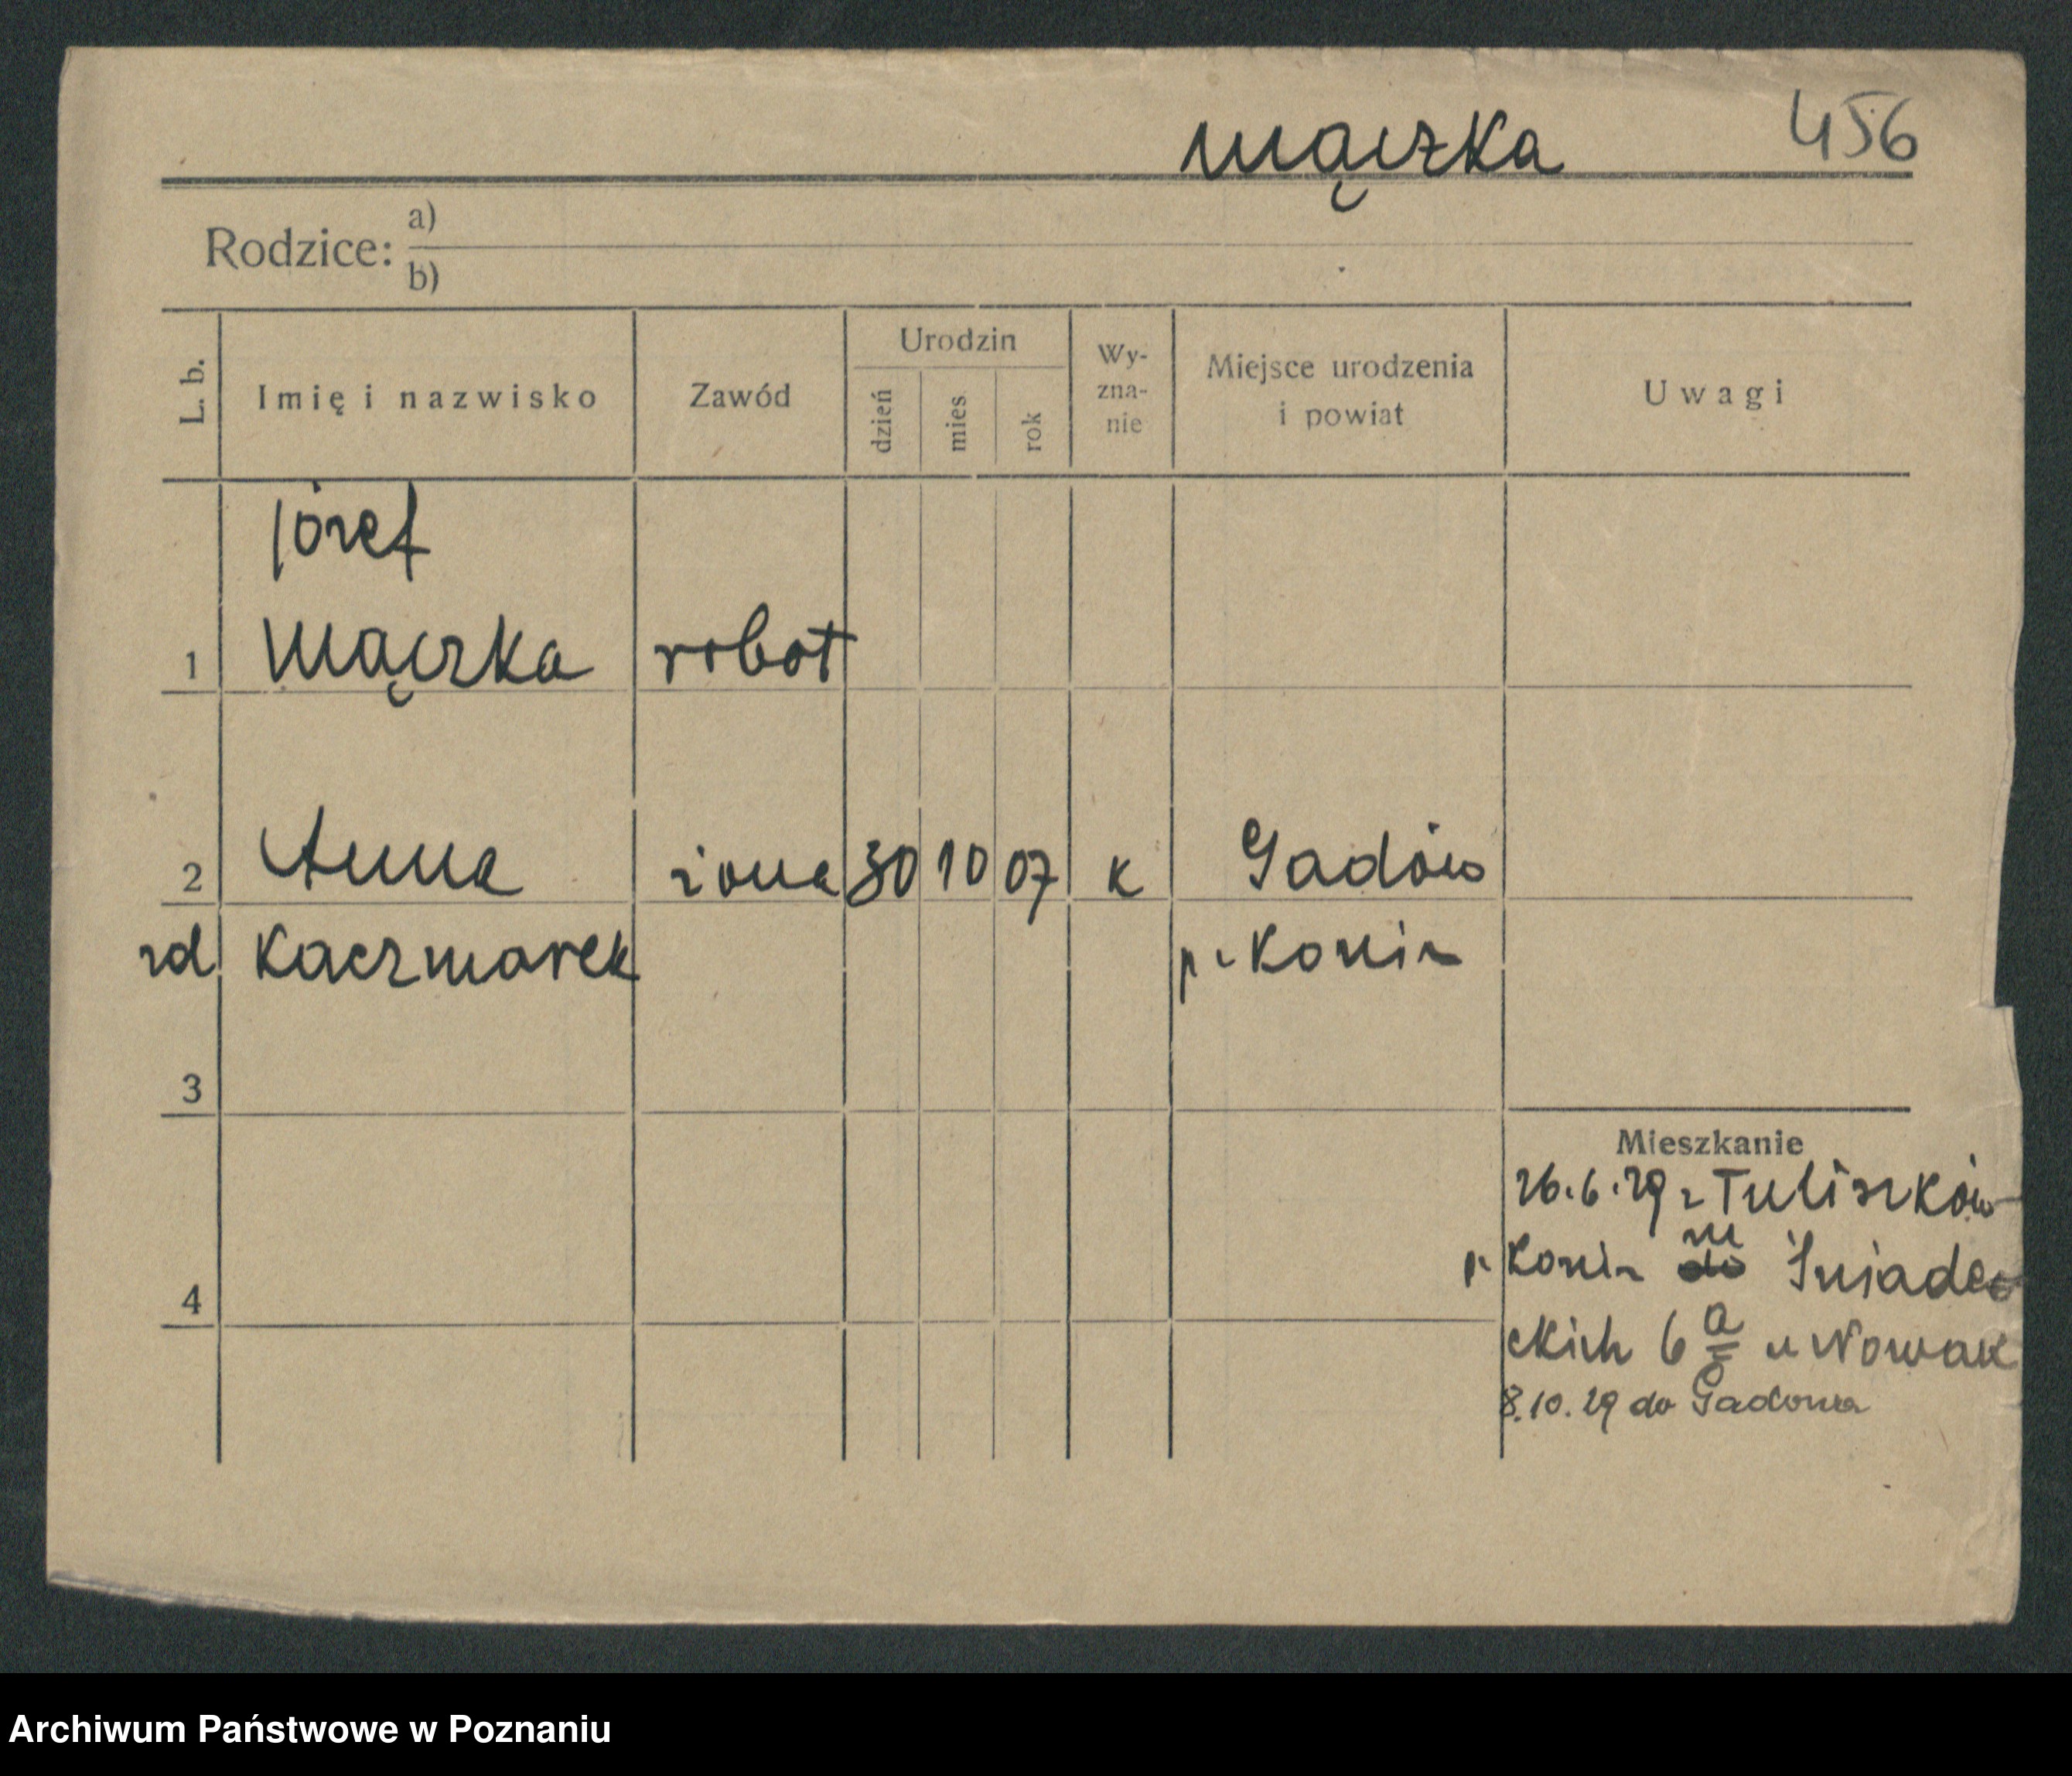 Mączka 456
Rodzice: a)
b)
L. b. Imię i nazwisko Zawód Urodzin dzień mies. rok Wy-zna-nie Miejsce urodzenia i powiat Uwagi
Józef
1 Mączka robot
2 Anna żona 30 10 07 k Gadów
zd Kaczmarek p. Konin
3
Mieszkanie
26.6.29 z Tuliszków
p. Konin
4 Śniadec
ckich 6 a u Nowak
8.10.29 do Gadowa
Archiwum Państwowe w Poznaniu